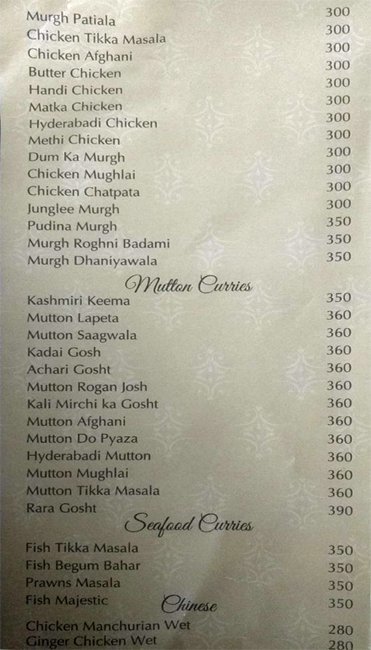 Murgh Patiala 300
Chicken Tikka Masala 300
Chicken Afghani 300
Butter Chicken 300
Handi Chicken 300
Matka Chicken 300
Hyderabadi Chicken 300
Methi Chicken 300
Dum Ka Murgh 300
Chicken Mughlai 300
Chicken Chatpata 300
Junglee Murgh 300
Pudina Murgh 350
Murgh Roghni Badami 350
Murgh Dhaniyawala 350
Mutton Curries
Kashmiri Keema 350
Mutton Lapeta 360
Mutton Saagwala 360
Kadai Gosh 360
Achari Gosht 360
Mutton Rogan Josh 360
Kali Mirchi ka Gosht 360
Mutton Afghani 360
Mutton Do Pyaza 360
Hyderabadi Mutton 360
Mutton Mughlai 360
Mutton Tikka Masala 360
Rara Gosht 390
Seafood Curries
Fish Tikka Masala 350
Fish Begum Bahar 350
Prawns Masala 350
Fish Majestic 350
Chinese
Chicken Manchurian Wet 280
Ginger Chicken Wet 280